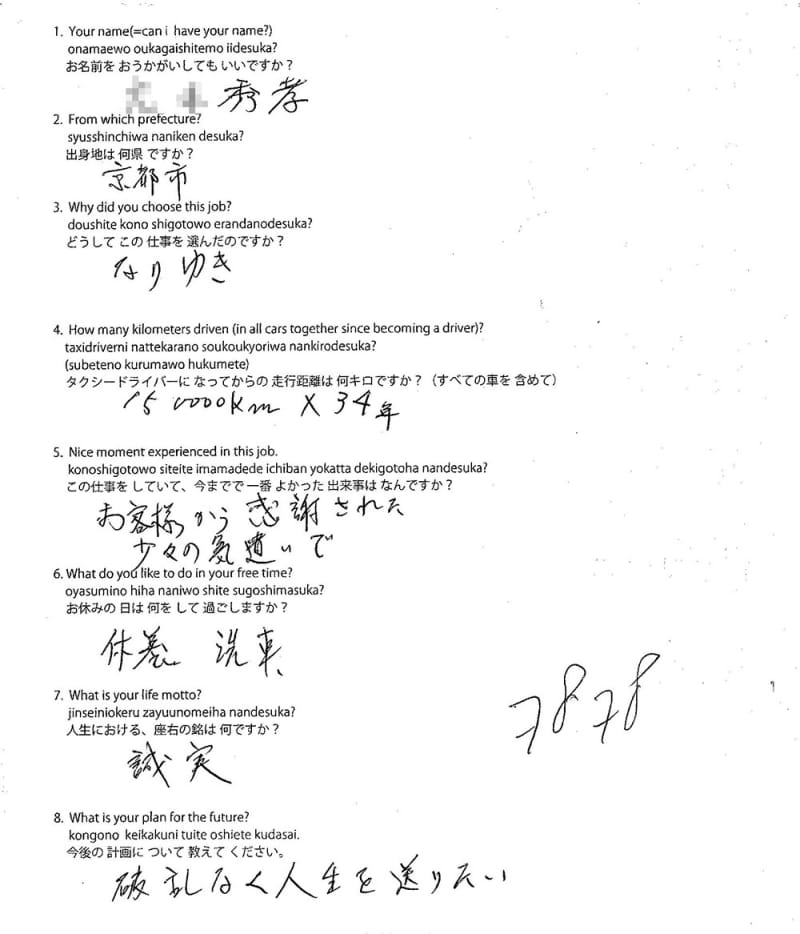 1. Your name(=can i have your name?)
onamaewo oukagaishitemo iidesuka?
お名前を おうかがいしても いいですか？
秀孝
2. From which prefecture?
syusshinchiwa naniken desuka?
出身地は 何県 ですか？
京都市
3. Why did you choose this job?
doushite kono shigotowo erandanodesuka?
どうして この 仕事を 選んだのですか？
なりゆき
4. How many kilometers driven (in all cars together since becoming a driver)?
taxidriverni nattekarano soukoukyoriwa nankirodesuka?
(subeteno kurumawo hukumete)
タクシードライバーに なってからの 走行距離は 何キロですか？（すべての車を 含めて）
150000km X 34年
5. Nice moment experienced in this job.
konoshigotowo siteite imamadede ichiban yokatta dekigotoha nandesuka?
この仕事を していて、今までで 一番 よかった 出来事は なんですか？
お客様から感謝された
少々の気遣いで
6. What do you like to do in your free time?
oyasumino hiha naniwo shite sugoshimasuka?
お休みの 日は 何を して 過ごしますか？
休養 洗車、
7. What is your life motto?
jinseiniokeru zayuunomeiha nandesuka?
人生における、座右の銘は 何ですか？
誠実
7878
8. What is your plan for the future?
kongono keikakuni tuite oshiete kudasai.
今後の 計画に ついて 教えて ください。
破乱なく人生を送りたい